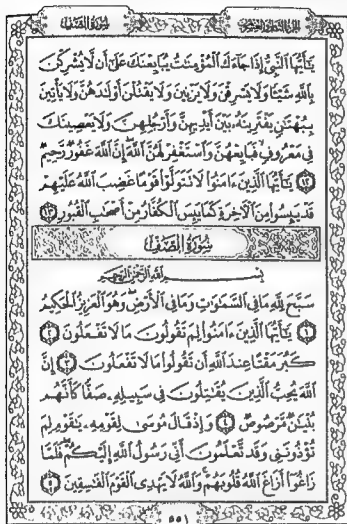 سورة الصف
يَٰٓأَيُّهَا ٱلنَّبِيُّ إِذَا جَآءَكَ ٱلْمُؤْمِنَٰتُ يُبَايِعْنَكَ عَلَىٰٓ أَن لَّا يُشْرِكْنَ
بِٱللَّهِ شَيْـًٔا وَلَا يَسْرِقْنَ وَلَا يَزْنِينَ وَلَا يَقْتُلْنَ أَوْلَٰدَهُنَّ وَلَا يَأْتِينَ
بِبُهْتَٰنٍ يَفْتَرِينَهُۥ بَيْنَ أَيْدِيهِنَّ وَأَرْجُلِهِنَّ وَلَا يَعْصِينَكَ
فِى مَعْرُوفٍ فَبَايِعْهُنَّ وَٱسْتَغْفِرْ لَهُنَّ ٱللَّهَ إِنَّ ٱللَّهَ غَفُورٌ رَّحِيمٌ
١٢ يَٰٓأَيُّهَا ٱلَّذِينَ ءَامَنُوا۟ لَا تَتَوَلَّوْا۟ قَوْمًا غَضِبَ ٱللَّهُ عَلَيْهِمْ
قَدْ يَئِسُوا۟ مِنَ ٱلْءَاخِرَةِ كَمَا يَئِسَ ٱلْكُفَّارُ مِنْ أَصْحَٰبِ ٱلْقُبُورِ ١٣
سورة الصف
بِسْمِ ٱللَّهِ ٱلرَّحْمَٰنِ ٱلرَّحِيمِ
سَبَّحَ لِلَّهِ مَا فِى ٱلسَّمَٰوَٰتِ وَمَا فِى ٱلْأَرْضِ وَهُوَ ٱلْعَزِيزُ ٱلْحَكِيمُ
١ يَٰٓأَيُّهَا ٱلَّذِينَ ءَامَنُوا۟ لِمَ تَقُولُونَ مَا لَا تَفْعَلُونَ ٢
كَبُرَ مَقْتًا عِندَ ٱللَّهِ أَن تَقُولُوا۟ مَا لَا تَفْعَلُونَ ٣ إِنَّ
ٱللَّهَ يُحِبُّ ٱلَّذِينَ يُقَٰتِلُونَ فِى سَبِيلِهِۦ صَفًّا كَأَنَّهُم
بُنْيَٰنٌ مَّرْصُوصٌ ٤ وَإِذْ قَالَ مُوسَىٰ لِقَوْمِهِۦ يَٰقَوْمِ لِمَ
تُؤْذُونَنِى وَقَد تَّعْلَمُونَ أَنِّى رَسُولُ ٱللَّهِ إِلَيْكُمْ فَلَمَّا
زَاغُوٓا۟ أَزَاغَ ٱللَّهُ قُلُوبَهُمْ وَٱللَّهُ لَا يَهْدِى ٱلْقَوْمَ ٱلْفَٰسِقِينَ ٥
٥٥١